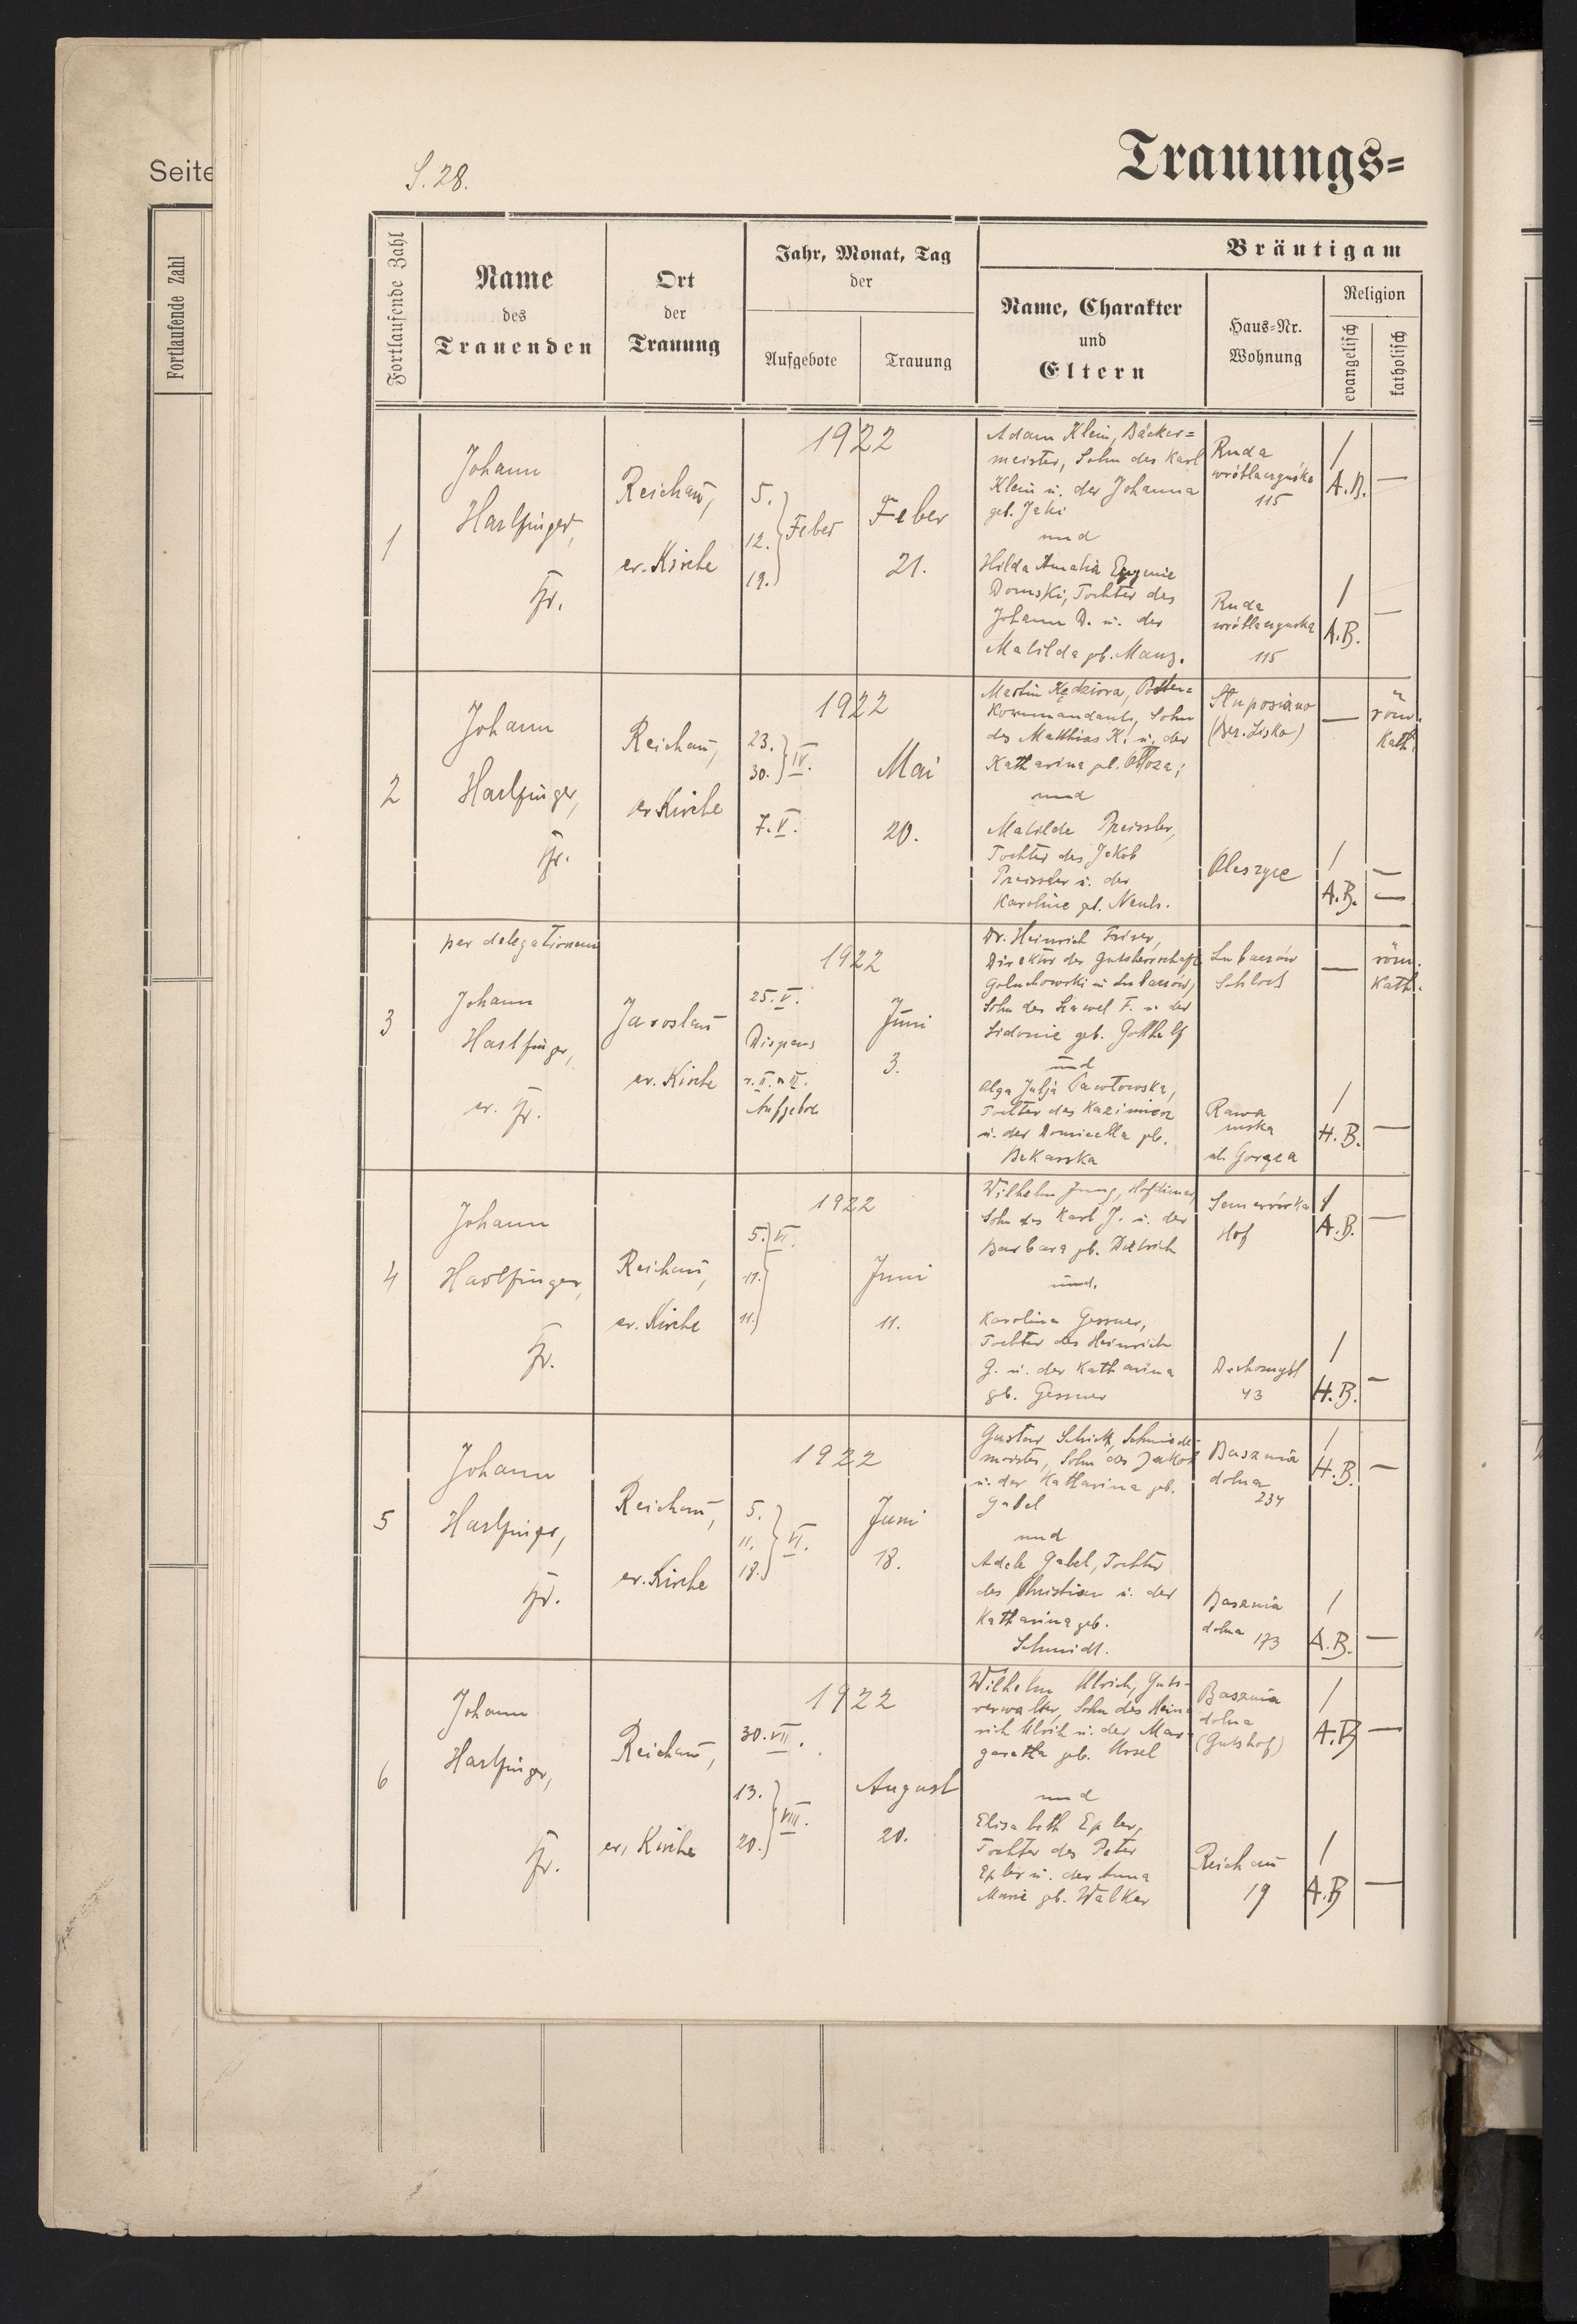 Seite
Fortlaufende Zahl
S. 28.
Trauungs=
Fortlaufende Zahl
Name
des
Trauenden
Ort
der
Trauung
Jahr, Monat, Tag
der
Aufgebote
Trauung
Bräutigam
Name, Charakter
und
Eltern
Haus=Nr.
Wohnung
Religion
evangelisch
katholisch
1
Johann
Harlfinger,
Pfr.
Reichau,
ev. Kirche
1922
5.
12.
19.
Feber
Feber
21.
Adam Klein, Bäcker=
meister, Sohn des Karl
Klein u. der Johanna
geb. Jaki
und
Hilda Amalia Eugenie
Domski, Tochter des
Johann D. u. der
Matilda gb. Manz.
Ruda
115
/
A.B.
—
Ruda
115
/
A.B.
—
2
Johann
Harlfinger,
Pfr.
Reichau,
ev Kirche
1922
23.
30.
IV.
7. V.
Mai
20.
Martin Kędziora, Posten=
Kommandant, Sohn
des Matthias K. u. der
Katharina gb.
und
Matilde Preissler,
Tochter des Jakob
Preissler u. der
Karoline gb.
Stuposiano
(Bez. Lisko)
—
röm.
Kath.
Oleszyce
/
A.B.
—
—
3
per delegationem
Johann
Harlfinger,
ev. Pfr.
Jaroslau
ev. Kirche
1922
25. V.
Dispens
v. II. u III.
Aufgebot
Juni
3.
Dr. Heinrich
Direktor der Gutsherrschaft
Goluchowski in Lubaczów,
Sohn des F. u. der
Sidonie geb. Gotthelf
und
Olga Julja Pawłowska,
Tochter des Kazimierz
u. der Domicella gb.
Bekarska
Lubaczów
Schloss
—
röm.
Kath.
Rawa
ruska
/
H.B.
—
4
Johann
Harlfinger,
Pfr.
Reichau,
ev. Kirche
1922
5.
VI.
11.
11.
Juni
11.
Wilhelm Jung,
Sohn des Karl J. u. der
Barbara gb. Dietrich
und.
Karolina Gessner,
Tochter des Heinrich
G. u. der Katharina
gb. Gessner
Hof
/
A.B.
—
43
/
H.B.
—
5
Johann
Harlfinger,
Pfr.
Reichau,
ev. Kirche
1922
5.
11.
18.
VI.
Juni
18.
Gustav Schick, Schmiede
meister, Sohn des Jakob
u. der Katharina gb.
Gabel
und
Adele Gabel, Tochter
des Christian u. der
Katharina gb.
Schmidt.
Basznia
dolna
234
/
H.B.
—
Basznia
dolna 173
/
A.B.
—
6
Johann
Harlfinger,
Pfr.
Reichau,
ev. Kirche
1922
30. VII.
13.
20.
VIII.
August
20.
Wilhelm Ulrich, Guts-
verwalter, Sohn des Hein=
rich Ulrich u. der Mar=
garetha geb. Ursel
und
Elisabeth Epler,
Tochter des Peter
Epler u. der Anna
Marie gb. Walker
Basznia
dolna
(Gutshof)
/
A.B
—
Reichau
19
/
A.B
—